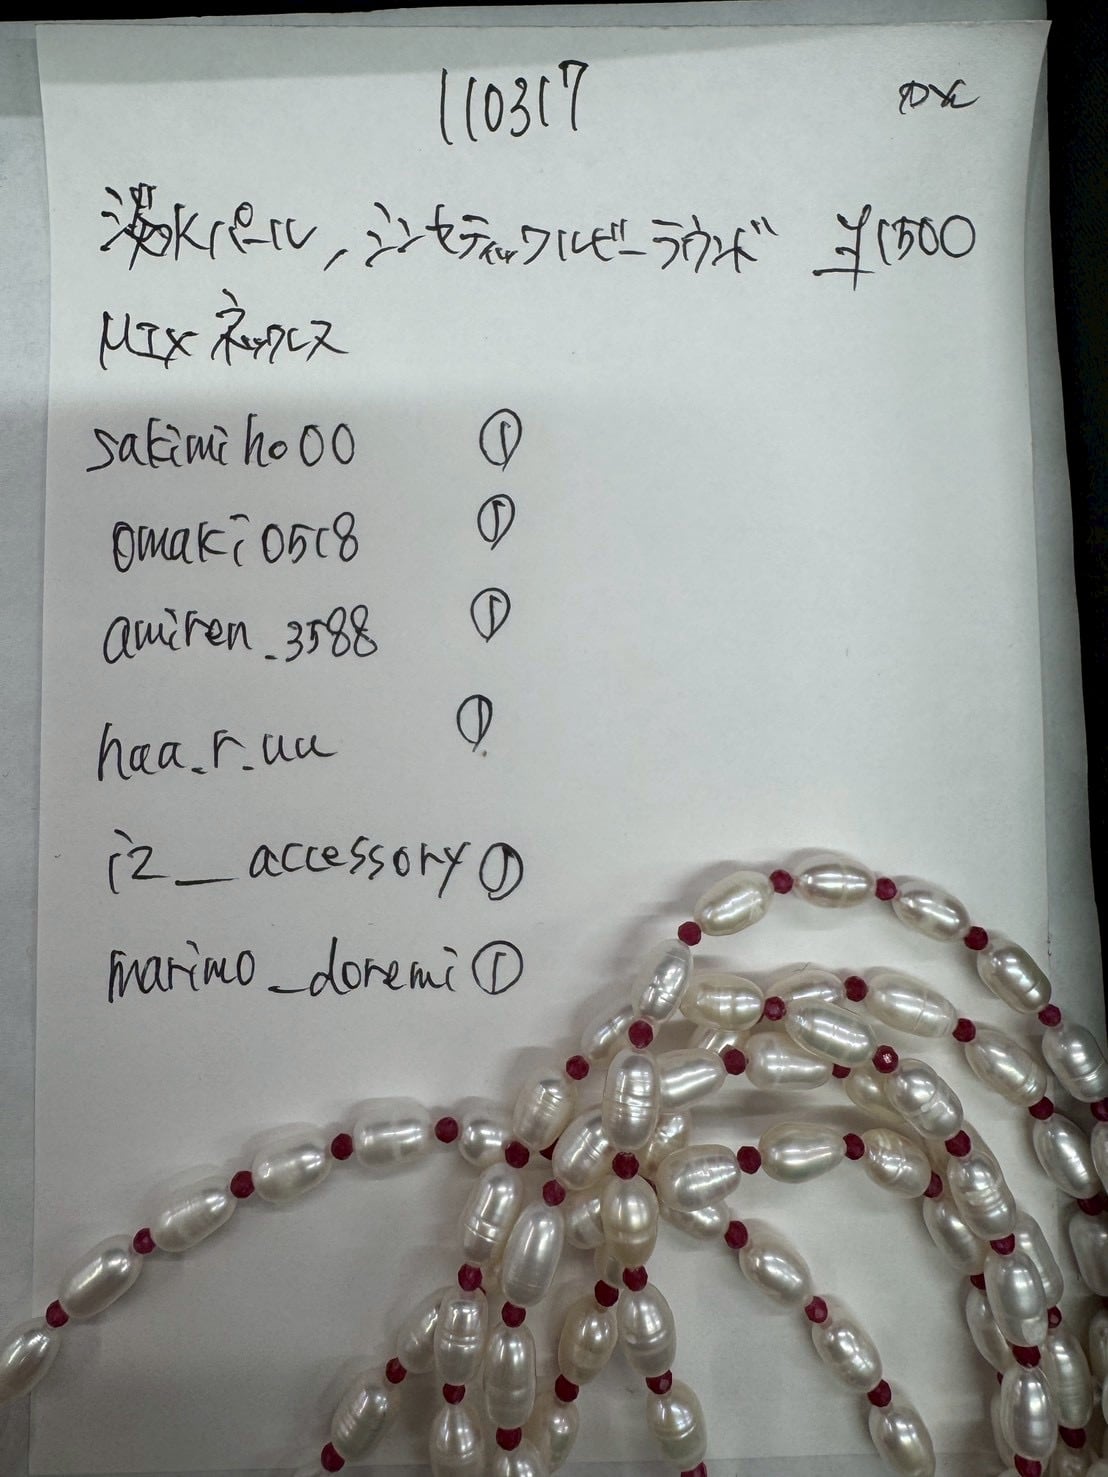 110317
淡水パール、シンセティックルビーラウンド ¥1500
MIXネックレス
sakimiho00 ①
omaki0518 ①
amiren_3588 ①
haa_r_uu ①
i2__accessory ①
marimo_doremi ①